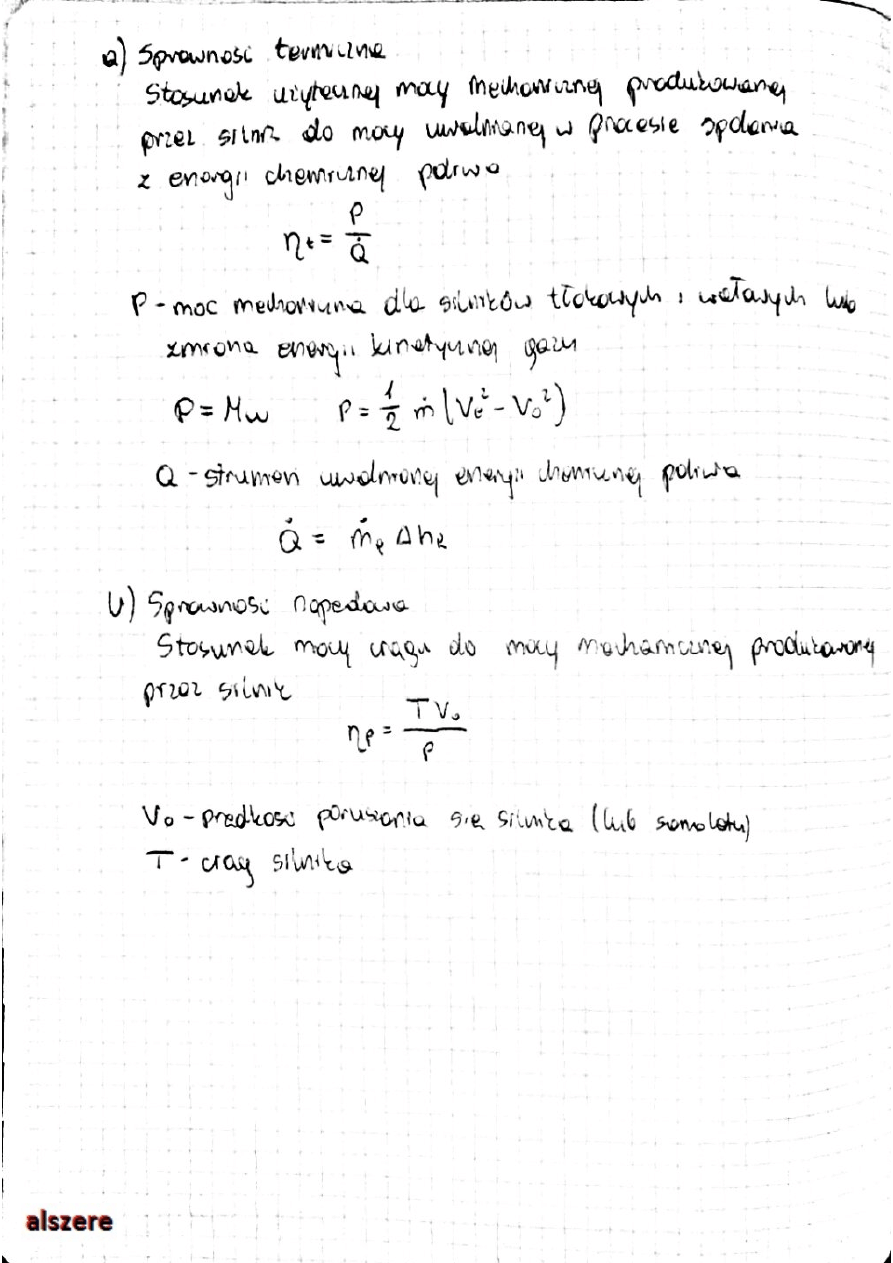 a) Sprawność termiczna
Stosunek użytecznej mocy mechanicznej produkowanej
przez silnik do mocy uwalnianej w procesie spalania
z energii chemicznej paliwa
ηt = P / Q̇
P - moc mechaniczna dla silników tłokowych i wałowych lub
zmiana energii kinetycznej gazu
P = Mω P = 1/2 ṁ (Ve² - Vo²)
Q - strumień uwolnionej energii chemicznej paliwa
Q̇ = ṁp ΔhR
b) Sprawność napędowa
Stosunek mocy ciągu do mocy mechanicznej produkowanej
przez silnik
ηp = T Vo / P
Vo - prędkość poruszania się silnika (lub samolotu)
T - ciąg silnika
alszere